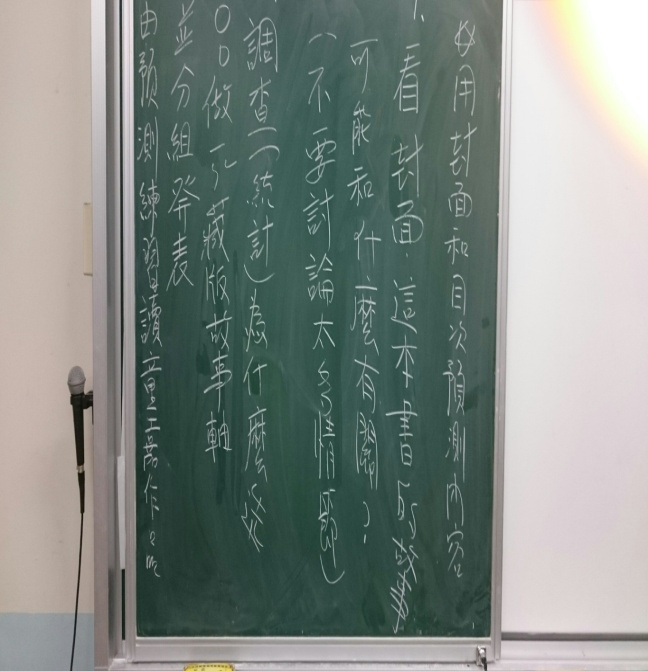 用封面和目次預測內容
1. 看封面,這本書的故事
可能和什麼有關?
(不要討論太多情節)
調查(統計)為什麼
OO做 藏版故事軸
並分組發表
由預測練習讀